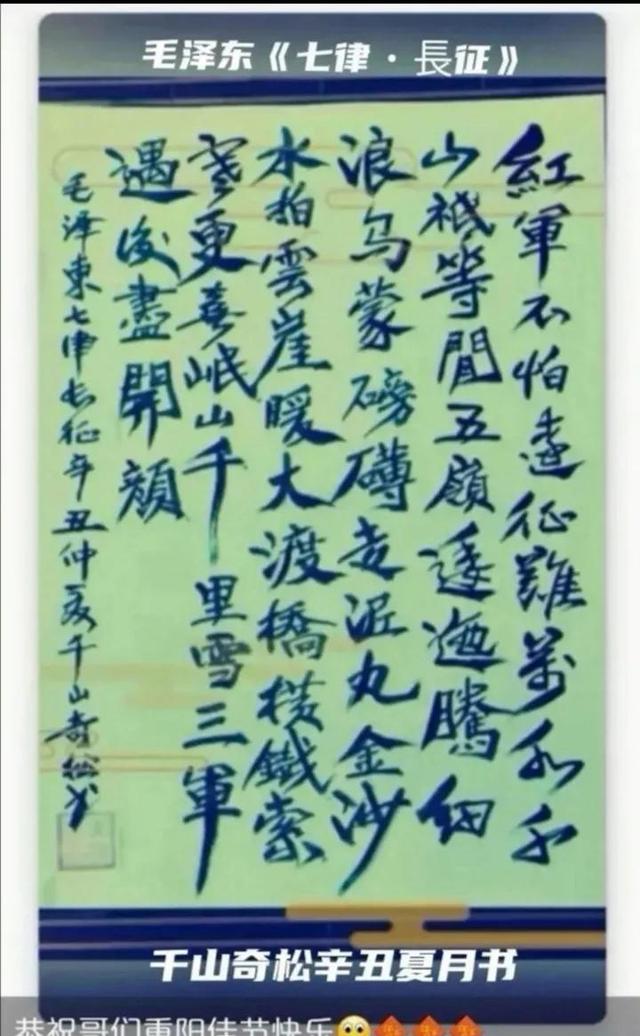 毛泽东《七律·長征》
紅軍不怕遠征難萬水千
山祗等閒五嶺逶迤騰細
浪乌蒙磅礴走泥丸金沙
水拍雲崖暖大渡橋橫鐵索
寒更喜岷山千里雪三軍
過後盡開顏
毛泽東七律长征辛丑仲夏千山奇松书
千山奇松辛丑夏月书
恭祝哥们重阳佳节快乐